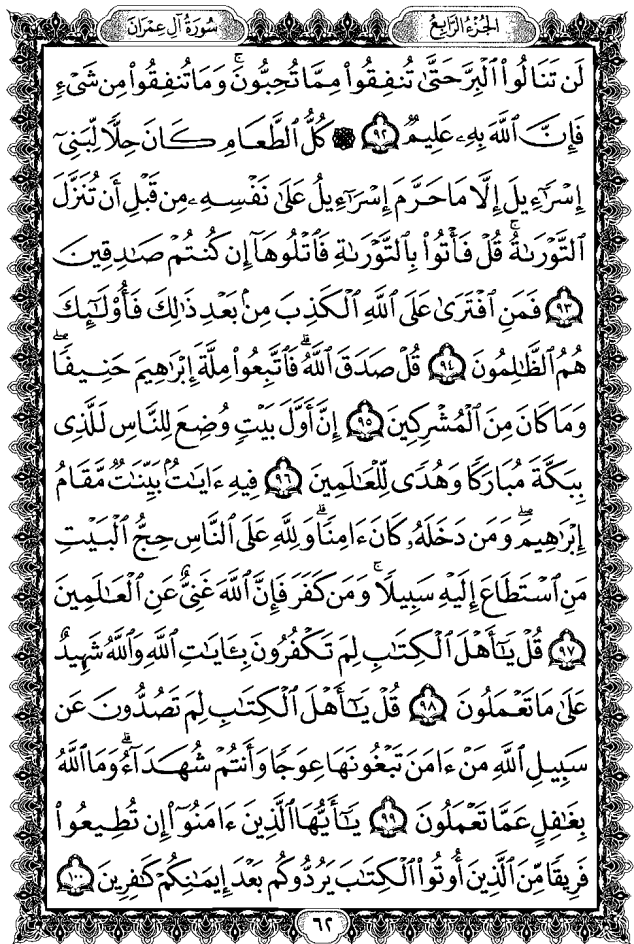 الجزء الرابع
سورة آل عمران
لَن تَنَالُوا۟ الْبِرَّ حَتَّىٰ تُنفِقُوا۟ مِمَّا تُحِبُّونَ ۚ وَمَا تُنفِقُوا۟ مِن شَىْءٍ
فَإِنَّ اللَّهَ بِهِۦ عَلِيمٌ ٩٢ ۞ كُلُّ الطَّعَامِ كَانَ حِلًّا لِّبَنِىٓ
إِسْرَٰٓءِيلَ إِلَّا مَا حَرَّمَ إِسْرَٰٓءِيلُ عَلَىٰ نَفْسِهِۦ مِن قَبْلِ أَن تُنَزَّلَ
التَّوْرَىٰةُ ۗ قُلْ فَأْتُوا۟ بِالتَّوْرَىٰةِ فَاتْلُوهَآ إِن كُنتُمْ صَٰدِقِينَ
٩٣ فَمَنِ افْتَرَىٰ عَلَى اللَّهِ الْكَذِبَ مِنۢ بَعْدِ ذَٰلِكَ فَأُو۟لَٰٓئِكَ
هُمُ الظَّٰلِمُونَ ٩٤ قُلْ صَدَقَ اللَّهُ ۗ فَاتَّبِعُوا۟ مِلَّةَ إِبْرَٰهِيمَ حَنِيفًا ۖ
وَمَا كَانَ مِنَ الْمُشْرِكِينَ ٩٥ إِنَّ أَوَّلَ بَيْتٍ وُضِعَ لِلنَّاسِ لَلَّذِى
بِبَكَّةَ مُبَارَكًا وَهُدًى لِّلْعَٰلَمِينَ ٩٦ فِيهِ ءَايَٰتٌۢ بَيِّنَٰتٌ مَّقَامُ
إِبْرَٰهِيمَ ۖ وَمَن دَخَلَهُۥ كَانَ ءَامِنًا ۗ وَلِلَّهِ عَلَى النَّاسِ حِجُّ الْبَيْتِ
مَنِ اسْتَطَاعَ إِلَيْهِ سَبِيلًا ۚ وَمَن كَفَرَ فَإِنَّ اللَّهَ غَنِىٌّ عَنِ الْعَٰلَمِينَ
٩٧ قُلْ يَٰٓأَهْلَ الْكِتَٰبِ لِمَ تَكْفُرُونَ بِـَٔايَٰتِ اللَّهِ وَاللَّهُ شَهِيدٌ
عَلَىٰ مَا تَعْمَلُونَ ٩٨ قُلْ يَٰٓأَهْلَ الْكِتَٰبِ لِمَ تَصُدُّونَ عَن
سَبِيلِ اللَّهِ مَنْ ءَامَنَ تَبْغُونَهَا عِوَجًا وَأَنتُمْ شُهَدَآءُ ۗ وَمَا اللَّهُ
بِغَٰفِلٍ عَمَّا تَعْمَلُونَ ٩٩ يَٰٓأَيُّهَا الَّذِينَ ءَامَنُوٓا۟ إِن تُطِيعُوا۟
فَرِيقًا مِّنَ الَّذِينَ أُوتُوا۟ الْكِتَٰبَ يَرُدُّوكُم بَعْدَ إِيمَٰنِكُمْ كَٰفِرِينَ ١٠٠
٦٢